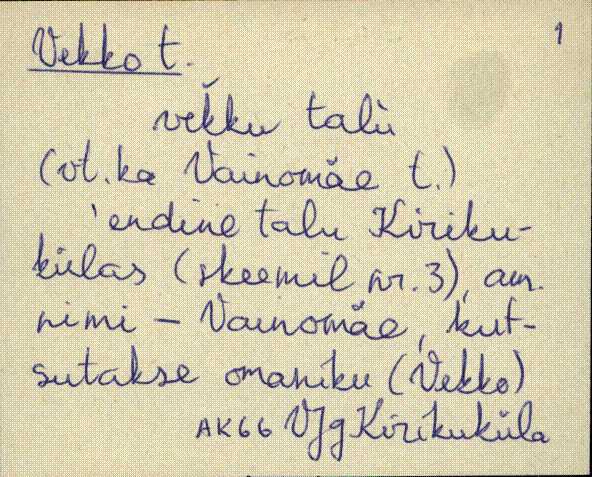 1
Vekko t.
vek̆ku talù
(vt. ka Vainomäe t.)
'endine talu Kiriku-
külas (skeemil nr. 3), am.
nimi – Vainomäe, kut-
sutakse omaniku (Vekko)
AK66 VJg Kirikuküla